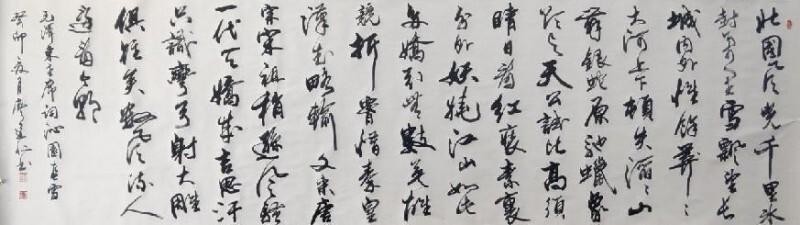 北国风光千里冰
封万里雪飘望长
城内外惟余莽々
大河上下顿失滔々山
舞银蛇原驰蜡象
欲与天公试比高须
晴日看红装素裹
分外妖娆江山如此
多娇引无數英雄
競折腰惜秦皇
汉武略输文采唐
宗宋祖稍逊风骚
一代天骄成吉思汗
只識弯弓射大雕
俱往矣數风流人
还看今朝
毛泽东主席词沁园春雪
癸卯夏月廖